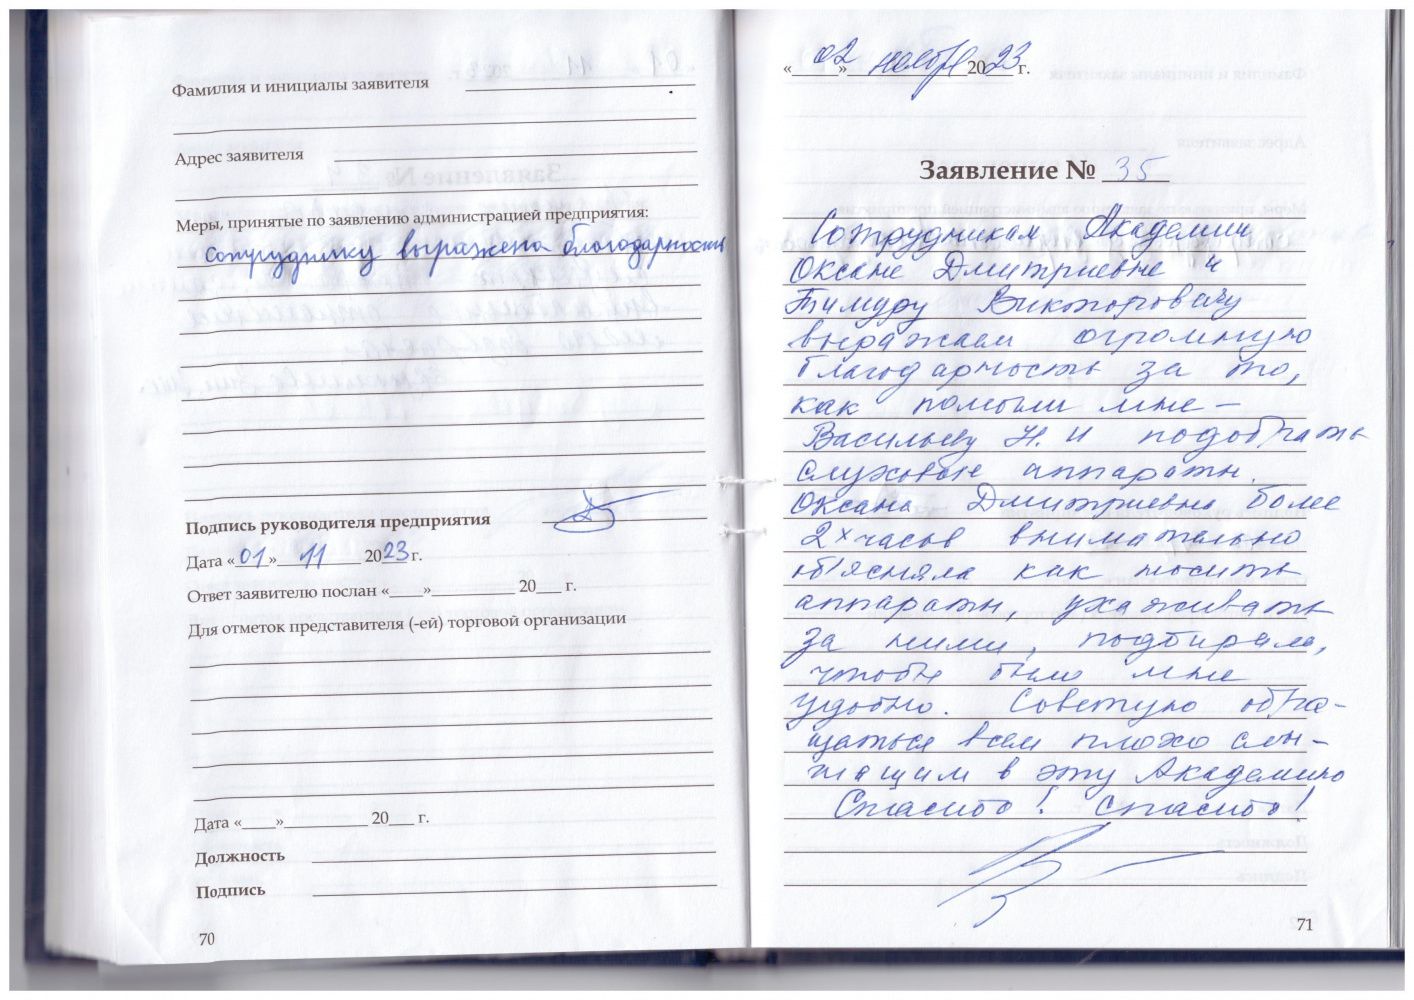 Фамилия и инициалы заявителя
Адрес заявителя
Меры, принятые по заявлению администрацией предприятия:
Сотруднику выражена благодарность
Подпись руководителя предприятия
Дата «01» 11 2023 г.
Ответ заявителю послан «____»__________ 20___ г.
Для отметок представителя (-ей) торговой организации
Дата «____»__________ 20___ г.
Должность
Подпись
70
«02» ноября 2023 г.
Заявление № 35
Сотрудникам Академии
Оксане Дмитриевне и
Тимуру Викторовичу
выражаем огромную
благодарность за то,
как помогли мне –
Васильеву Н. И подобрать
слуховые аппараты.
Оксана Дмитриевна более
2х часов внимательно
объясняла как носить
аппараты, ухаживать
за ними, подбирала,
чтобы было мне
удобно. Советую обра-
щаться всем плохо слы-
шащим в эту Академию
Спасибо! Спасибо!
71